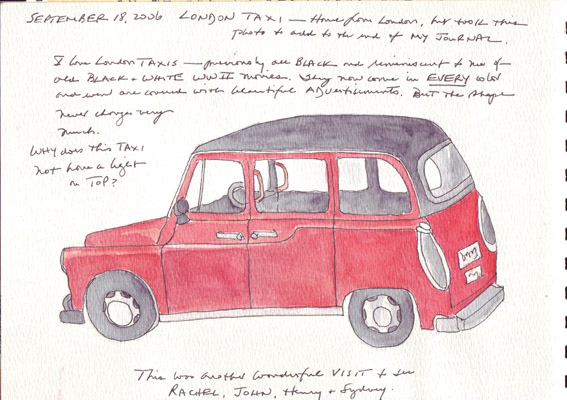 SEPTEMBER 18, 2006 LONDON TAXI — Home from London, but took this
photo to add to the end of MY JOURNAL.
I love London TAXIS — previously all BLACK and reminiscent to me of
old BLACK & WHITE WWII movies. They now come in EVERY color
and even are covered with beautiful ADvertisements. But the shape
never changes very
much.
WHY does this TAXI
not have a light
on TOP?
This was another wonderful VISIT to see
RACHEL, JOHN, Henry & Sydney.